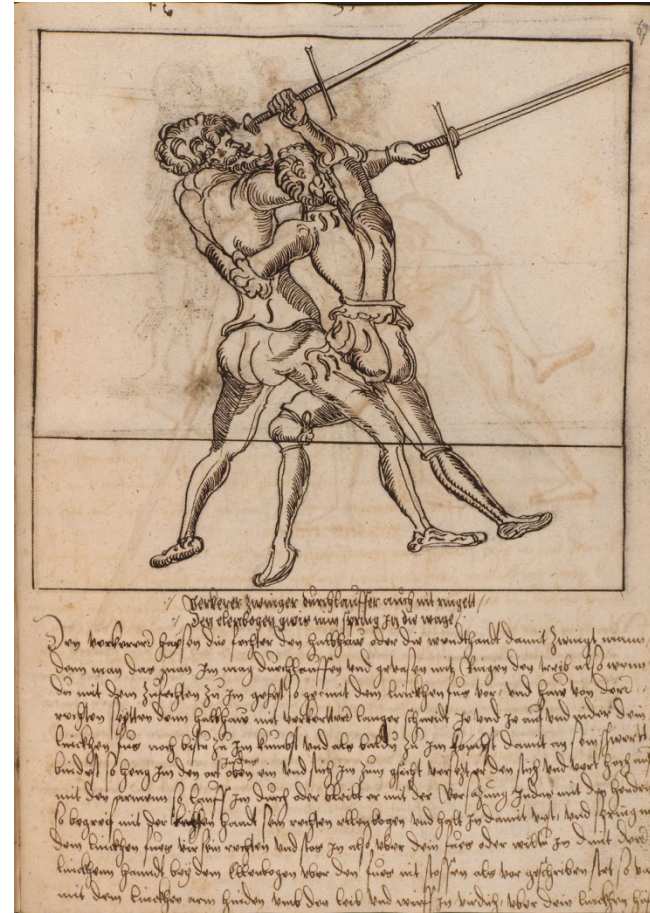 Verkerer zwinger durchlauffer auch mit ringett
Den elenbogen gwis nim spring In die wage
Den verkerer hayssen die fechter den halbhaw oder die wendthandt damit zwingt mann
denn man das man Im mag durchlauffen vnd gefasen mit Ringen den treib also wenn
du mit dem zufechten zu Im gest so gee mit dem linckhen fus vor vnd haw von der
rechten seytten dem halbhaw mit verkertter langer schneidt Je vnd Je auf vnd nider dem
linckhen fus noch bistu zu Im kumbst vnd als baldt zu Im damit an sein schwertt
bindest so heng Im den ort oben ein vnd stich Im zum gsicht versetzt er den stich vnd vert hoch auf
mit den armenn so lauff Im durch oder bleibt er mit der versatzung nider mit den henden
so begreif mit der handt sein rechten ellenbogen vnd halt In damit vest vnd spring m
dem linckhen fues vir sein rechten vnd stos In also vber den fues oder wiltu In mit der
linckhenn handt bey dem Ellenbogen vber den fues nit stossen als vor geschriben stet so
mit dem linckhen arm hinden vmb den leib vnd wirff In vber dein linckhe